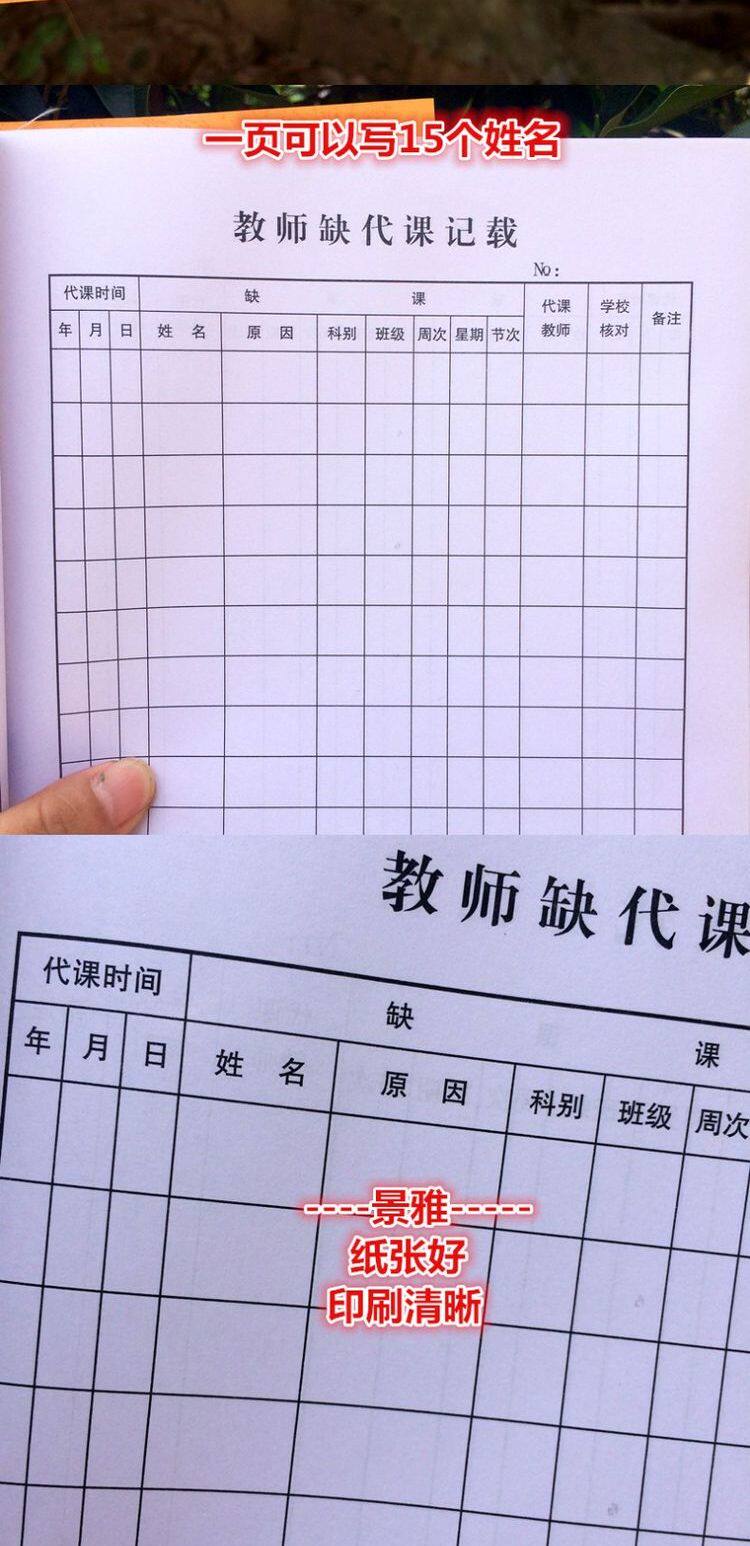 一页可以写15个姓名
教师缺代课记载
No:
代课时间 缺 课 代课教师 学校核对 备注
年 月 日 姓 名 原 因 科别 班级 周次 星期 节次
教师缺代课
代课时间 缺 课
年 月 日 姓 名 原 因 科别 班级 周次
----景雅-----
纸张好
印刷清晰